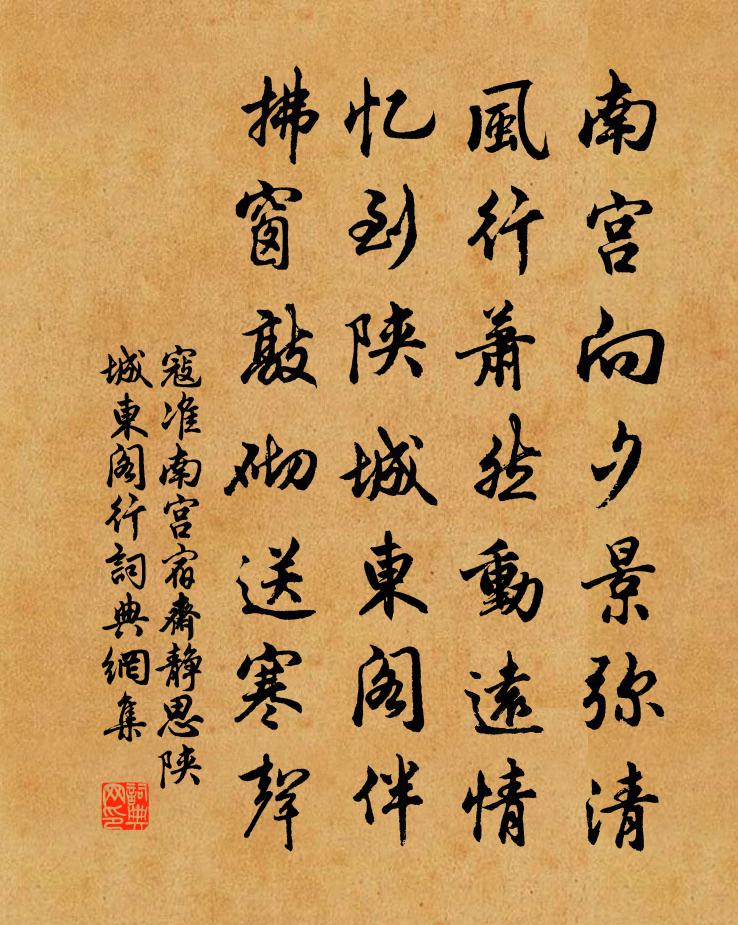 南宫向夕景弥清
風行蕭然動遠情
忆到陕城東阁伴
拂窗敲砌送寒聲
寇准南宫宿齋靜思陕
城東阁行詞典網集
詞典
网印